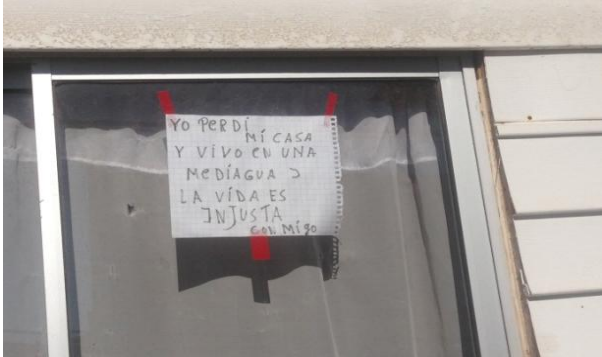 YO PERDÍ
MÍ CASA
Y VIVO EN UNA
MEDÍAGUA Ɔ
LA VÍDA ES
INJUSTA
CON MÍGO